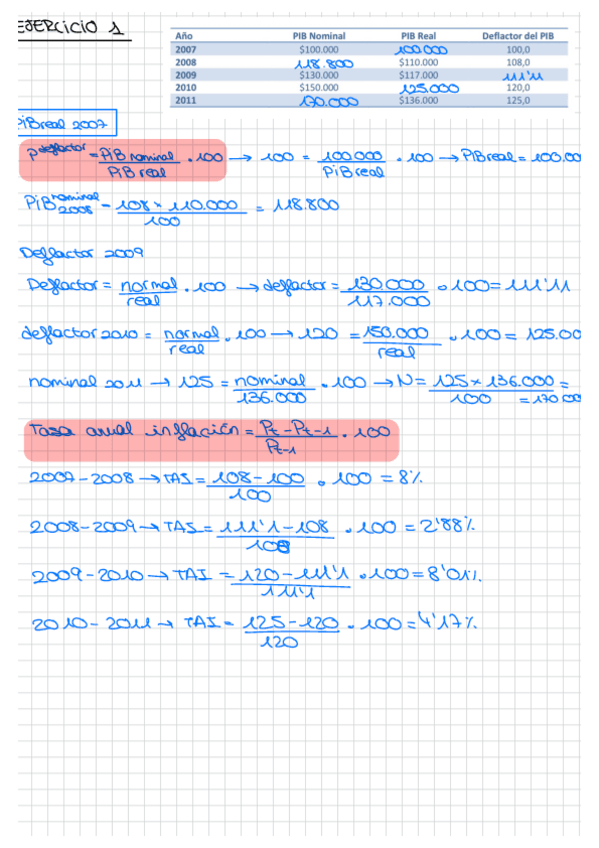 EJERCICIO 1
Año PIB Nominal PIB Real Deflactor del PIB
2007 $100.000 100.000 100,0
2008 118.800 $110.000 108,0
2009 $130.000 $117.000 111'11
2010 $150.000 125.000 120,0
2011 170.000 $136.000 125,0
PiBreal 2007
P deflactor = PiB nominal / PiB real . 100 → 100 = 100.000 / PiB real . 100 → PiBreal = 100.00
PiB nominal 2008 = 108 × 110.000 / 100 = 118.800
Deflactor 2009
Deflactor = normal / real . 100 → deflactor = 130.000 / 117.000 . 100 = 111'11
deflactor 2010 = normal / real . 100 → 120 = 150.000 / real . 100 = 125.00
nominal 2011 → 125 = nominal / 136.000 . 100 → N = 125 × 136.000 / 100 = = 170.00
Tasa anual inflación = Pt - Pt-1 / Pt-1 . 100
2007-2008 → TAS = 108-100 / 100 . 100 = 8%
2008-2009 → TAS = 111'1-108 / 108 . 100 = 2'88%
2009-2010 → TAI = 120-111'1 / 111'1 . 100 = 8'01%
2010-2011 → TAI = 125-120 / 120 . 100 = 4'17%